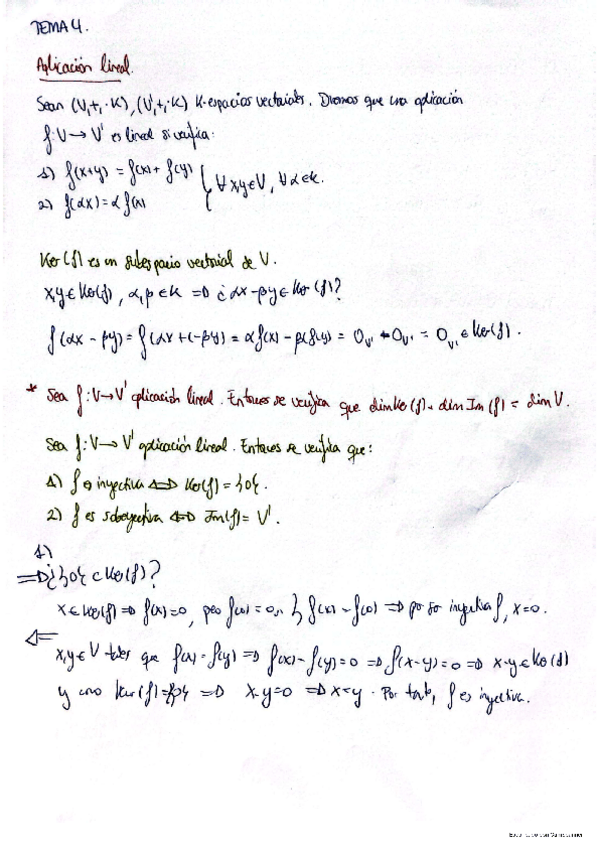 TEMA 4.
Aplicación lineal.
Sean (V,+,·K), (V',+,·K) K-espacios vectoriales. Diremos que una aplicación
f: V → V' es lineal si verifica:
1) f(x+y) = f(x) + f(y)
2) f(αx) = α f(x)
∀x,y∈V, ∀α∈K.
Ker(f) es un subespacio vectorial de V.
x,y∈Ker(f), α,β∈K ⇒ ¿αx-βy∈Ker(f)?
f(αx-βy) = f(αx+(-βy)) = αf(x) - βf(y) = 0v' - 0v' = 0v' ∈ Ker(f).
* Sea f: V→V' aplicación lineal. Entonces se verifica que dimKer(f) + dimIm(f) = dimV.
Sea f: V→V' aplicación lineal. Entonces se verifica que:
1) f es inyectiva ⇔ Ker(f) = {0}.
2) f es sobreyectiva ⇔ Im(f) = V'.
1)
⇒ ¿{0} ⊂ Ker(f)?
x∈Ker(f) ⇒ f(x)=0, pero f(0)=0 } f(x) = f(0) ⇒ por ser inyectiva f, x=0.
⇐
x,y∈V tales que f(x)=f(y) ⇒ f(x)-f(y)=0 ⇒ f(x-y)=0 ⇒ x-y∈Ker(f)
y como Ker(f)={0} ⇒ x-y=0 ⇒ x=y. Por tanto, f es inyectiva.